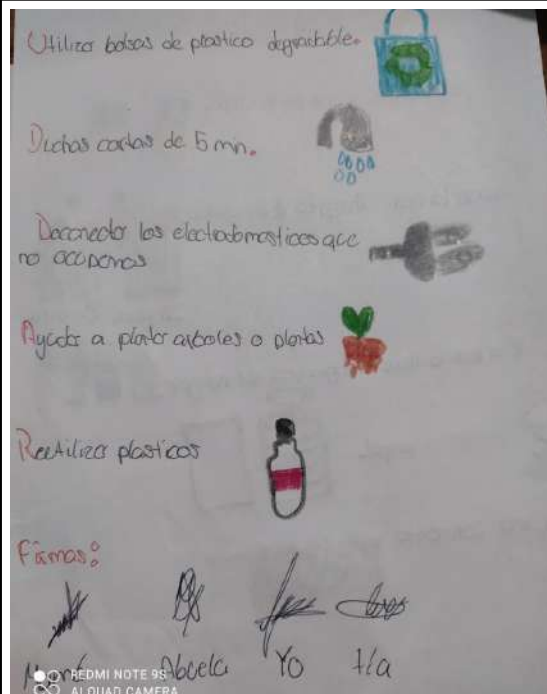 Utilizar bolsas de plastico degradable.
Duchas cortas de 5 min.
Deconectar los electrodomesticos que
no ocupemos
Ayudar a plantar arboles o plantas
Reutilizar plasticos
Firmas:
Mamá Abuela Yo tía
REDMI NOTE 9S
AI QUAD CAMERA